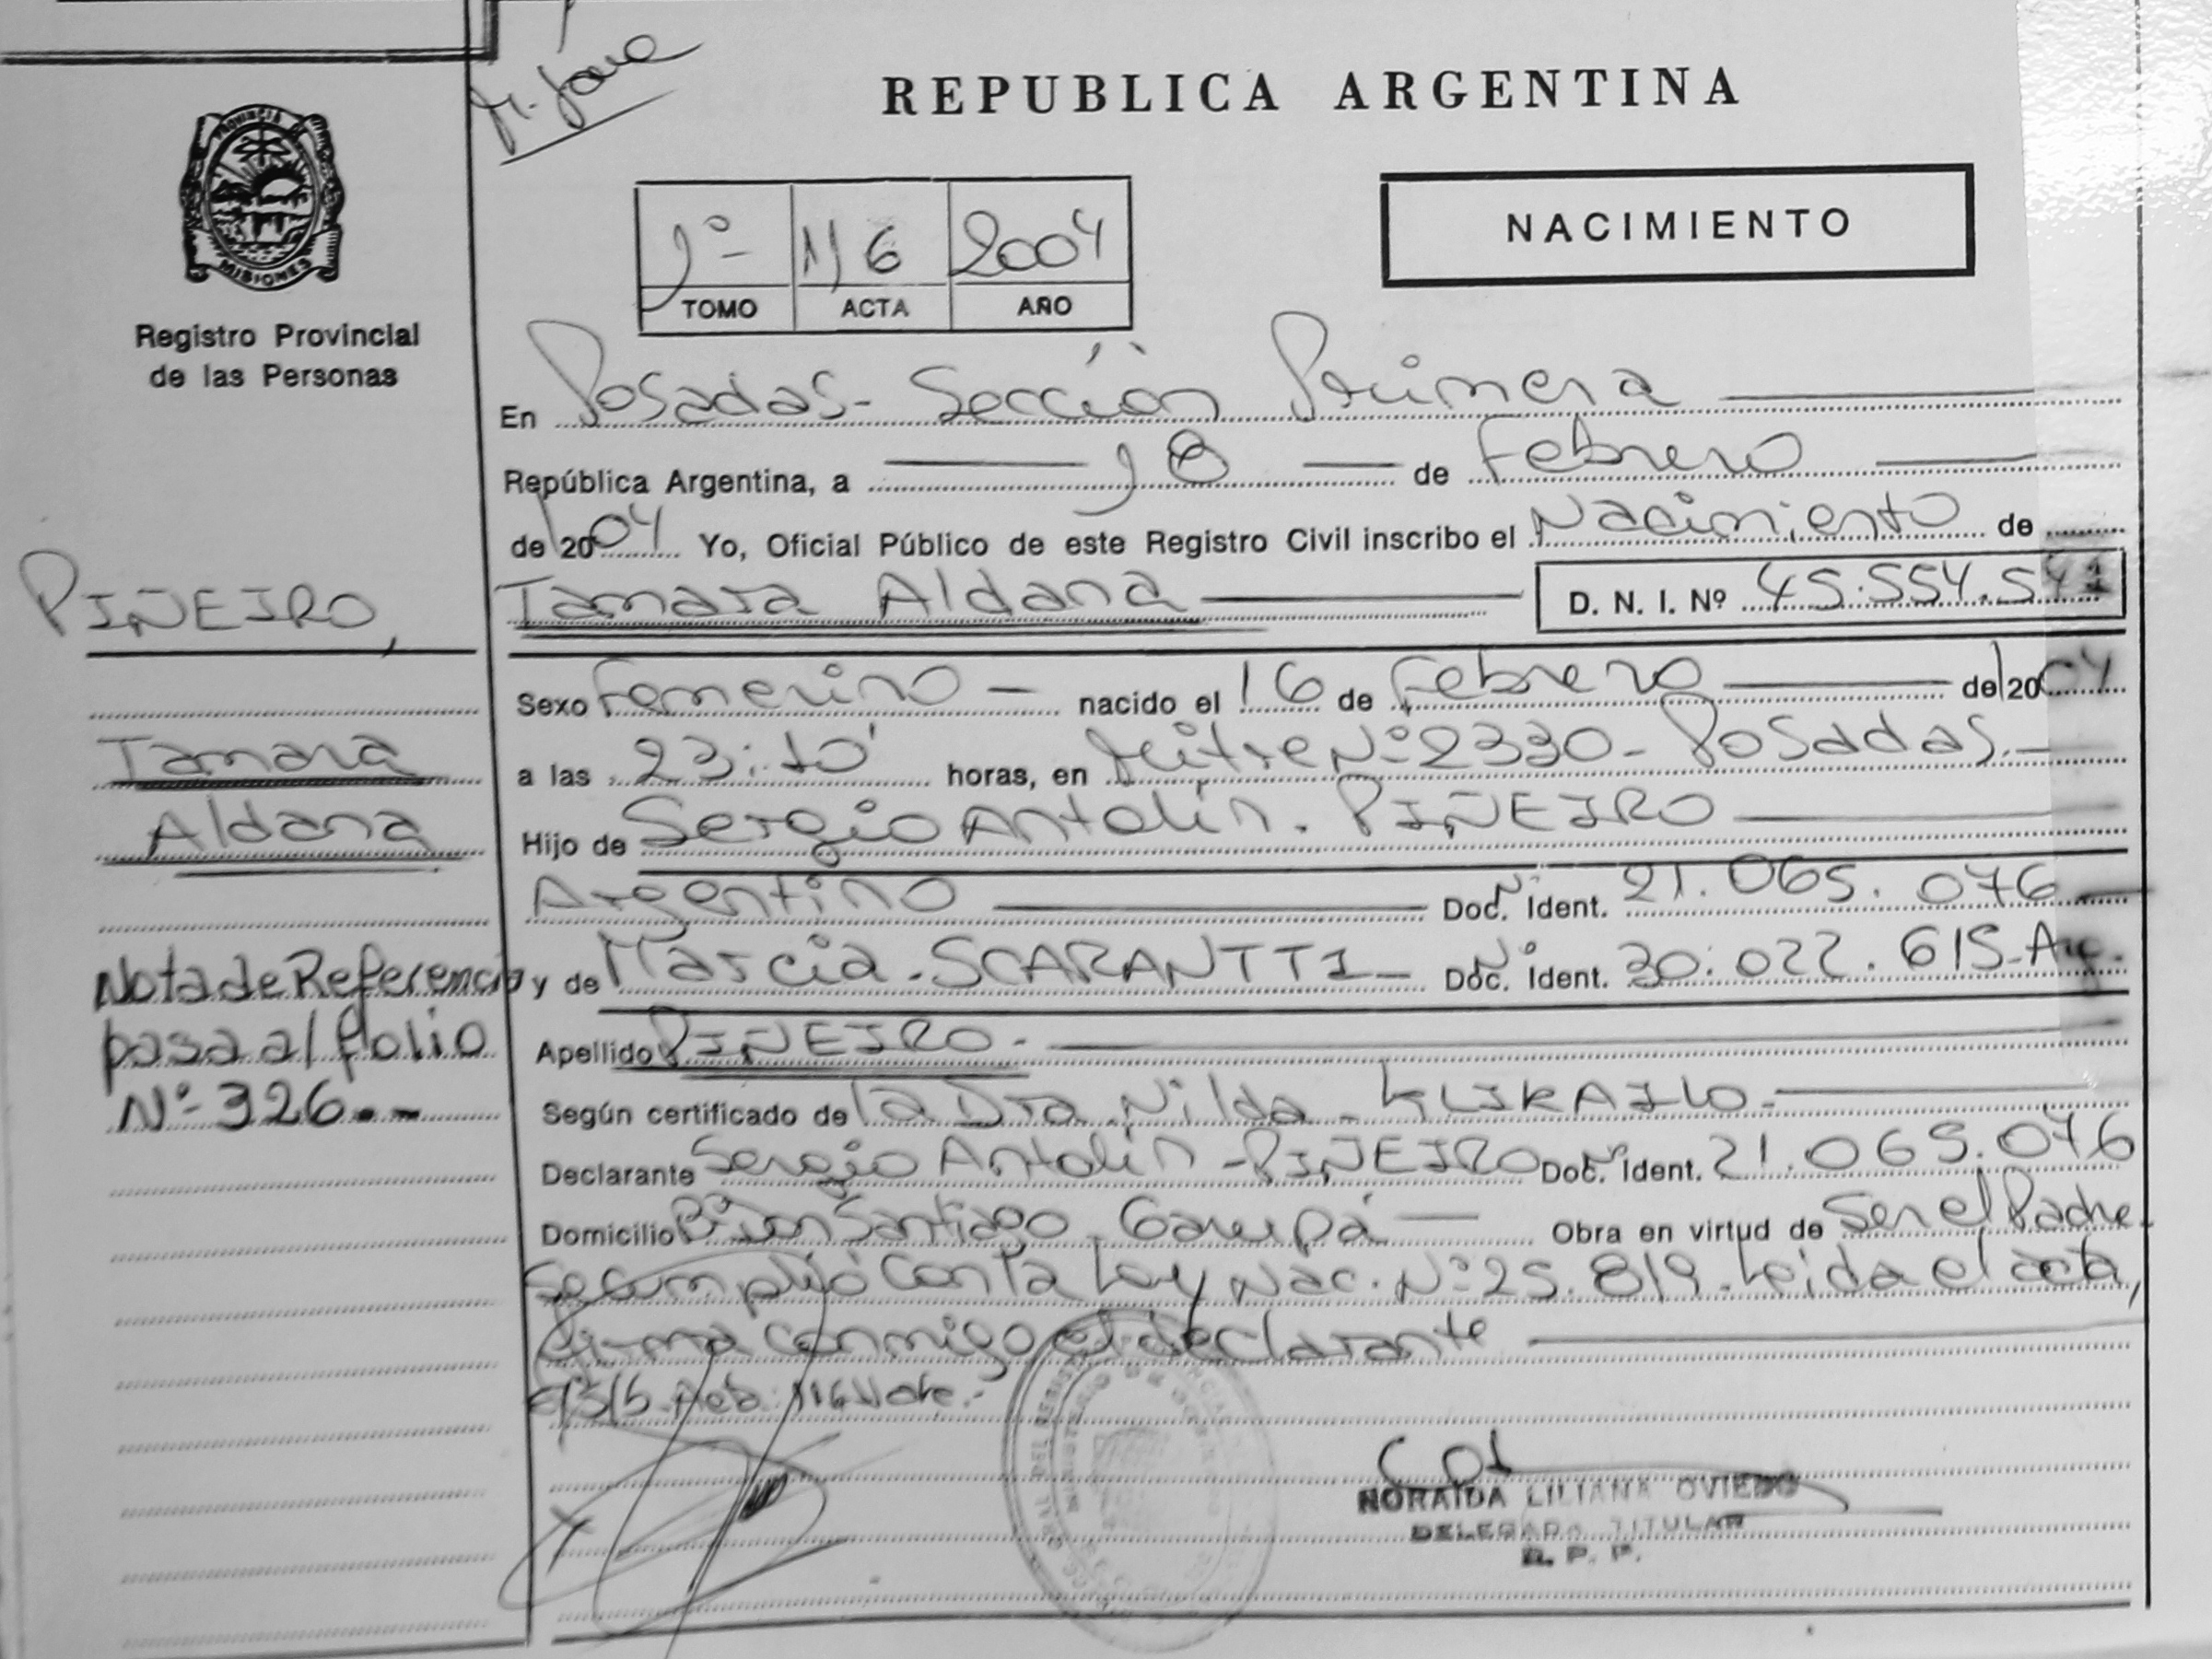 REPUBLICA ARGENTINA
PROVINCIA DE
MISIONES
Registro Provincial
de las Personas
NACIMIENTO
1º- 116 2004
TOMO ACTA AÑO
En Posadas- Sección Primera
República Argentina, a 18 de Febrero
de 2004 Yo, Oficial Público de este Registro Civil inscribo el Nacimiento de
Tamara Aldana D. N. I. Nº 45.554.541
Sexo Femenino - nacido el 16 de Febrero de 2004
a las 23:10' horas, en Mitre Nº 2330- Posadas.-
Hijo de Sergio Antolín. PIÑEIRO
Argentino Doc. Ident. Nº 21.065.076
y de Marcia. SCARANTTI- Doc. Ident. Nº 30.022.615-Arg.
Apellido PIÑEIRO.-
Según certificado de la Dra. Nilda - KLIKAILO.-
Declarante Sergio Antolín - PIÑEIRO Doc. Ident. Nº 21.065.076
Domicilio Santiago. Garupá Obra en virtud de Ser el Padre.
Se cumplió con la Ley Nac. Nº 25.819. Leída el acta,
firma conmigo el declarante
116 Vale.-
NORAIDA LILIANA OVIEDO
DELEGADA TITULAR
R. P. P.
PIÑEIRO,
Tamara
Aldana
Nota de Referencia
pasa al folio
Nº 326.-